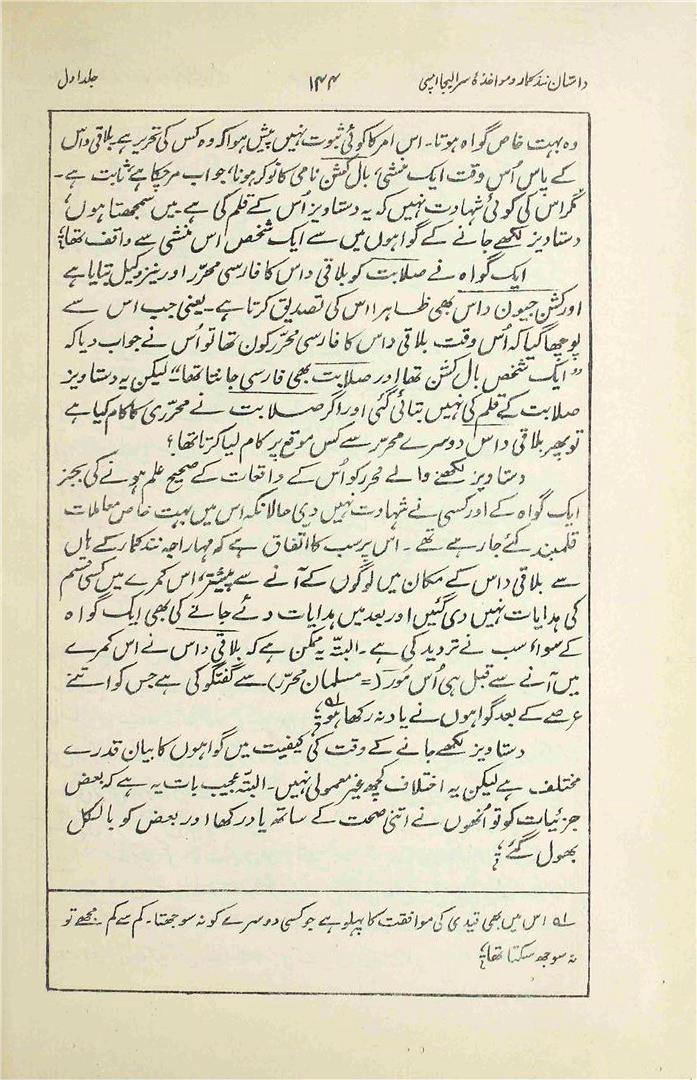 داستان نند کمار و مواخذۂ سر الیجا امپی ۱۴۴ جلد اول
وہ بہت خاص گواہ ہوتا۔ اس امر کا کوئی ثبوت نہیں پیش ہوا کہ وہ کس کی تحریر ہے۔ بلاقی داس
کے پاس اُس وقت ایک منشی، بال کشن نامی کا نوکر ہونا، جو اب مر چکا ہے، ثابت ہے۔
مگر اس کی کوئی شہادت نہیں کہ یہ دستاویز اُس کے قلم کی ہے۔ میں سمجھتا ہوں،
دستاویز لکھے جانے کے گواہوں میں سے ایک شخص اس منشی سے واقف تھا؛
ایک گواہ نے صلابت کو بلاقی داس کا فارسی محرّر اور نیز وکیل بتایا ہے
اور کشن جیون داس بھی ظاہرا اس کی تصدیق کرتا ہے۔ یعنی جب اس سے
پوچھا گیا کہ اُس وقت بلاقی داس کا فارسی محرّر کون تھا تو اُس نے جواب دیا کہ
”ایک شخص بال کشن تھا اور صلابت بھی فارسی جانتا تھا“ لیکن یہ دستاویز
صلابت کے قلم کی نہیں بتائی گئی اور اگر صلابت نے محرّری کا کام کیا ہے
تو پھر بلاقی داس دوسرے محرّر سے کس موقع پر کام لیا کرتا تھا؟
دستاویز لکھنے والے محرر کو اُس کے واقعات کے صحیح علم ہونے کی بجز
ایک گواہ کے اور کسی نے شہادت نہیں دی حالانکہ اس میں بہت خاص معاملات
قلمبند کئے جا رہے تھے۔ اس پر سب کا اتفاق ہے کہ مہاراجہ نند کمار کے ہاں
سے بلاقی داس کے مکان میں لوگوں کے آنے سے پیشتر، اس کمرے میں کسی قسم
کی ہدایات نہیں دی گئیں اور بعد میں ہدایات دئے جانے کی بھی ایک گواہ
کے سواء سب نے تردید کی ہے۔ البتّہ یہ ممکن ہے کہ بلاقی داس نے اس کمرے
میں آنے سے قبل ہی اُس مُور (= مسلمان محرّر) سے گفتگو کی ہے جس کو اتنے
عرصے کے بعد گواہوں نے یاد نہ رکھا ہو؛ ۱؎
دستاویز لکھے جانے کے وقت کی کیفیت میں گواہوں کا بیان قدرے
مختلف ہے لیکن یہ اختلاف کچھ غیر معمولی نہیں۔ البتّہ عجیب بات یہ ہے کہ بعض
جزئیات کو تو اُنھوں نے اتنی صحت کے ساتھ یاد رکھا اور بعض کو بالکل
بھول گئے؛
۱؎ اس میں بھی قیدی کی موافقت کا پہلو ہے جو کسی دوسرے کو نہ سوجھتا۔ کم سے کم مجھے تو
نہ سوجھ سکتا تھا؛